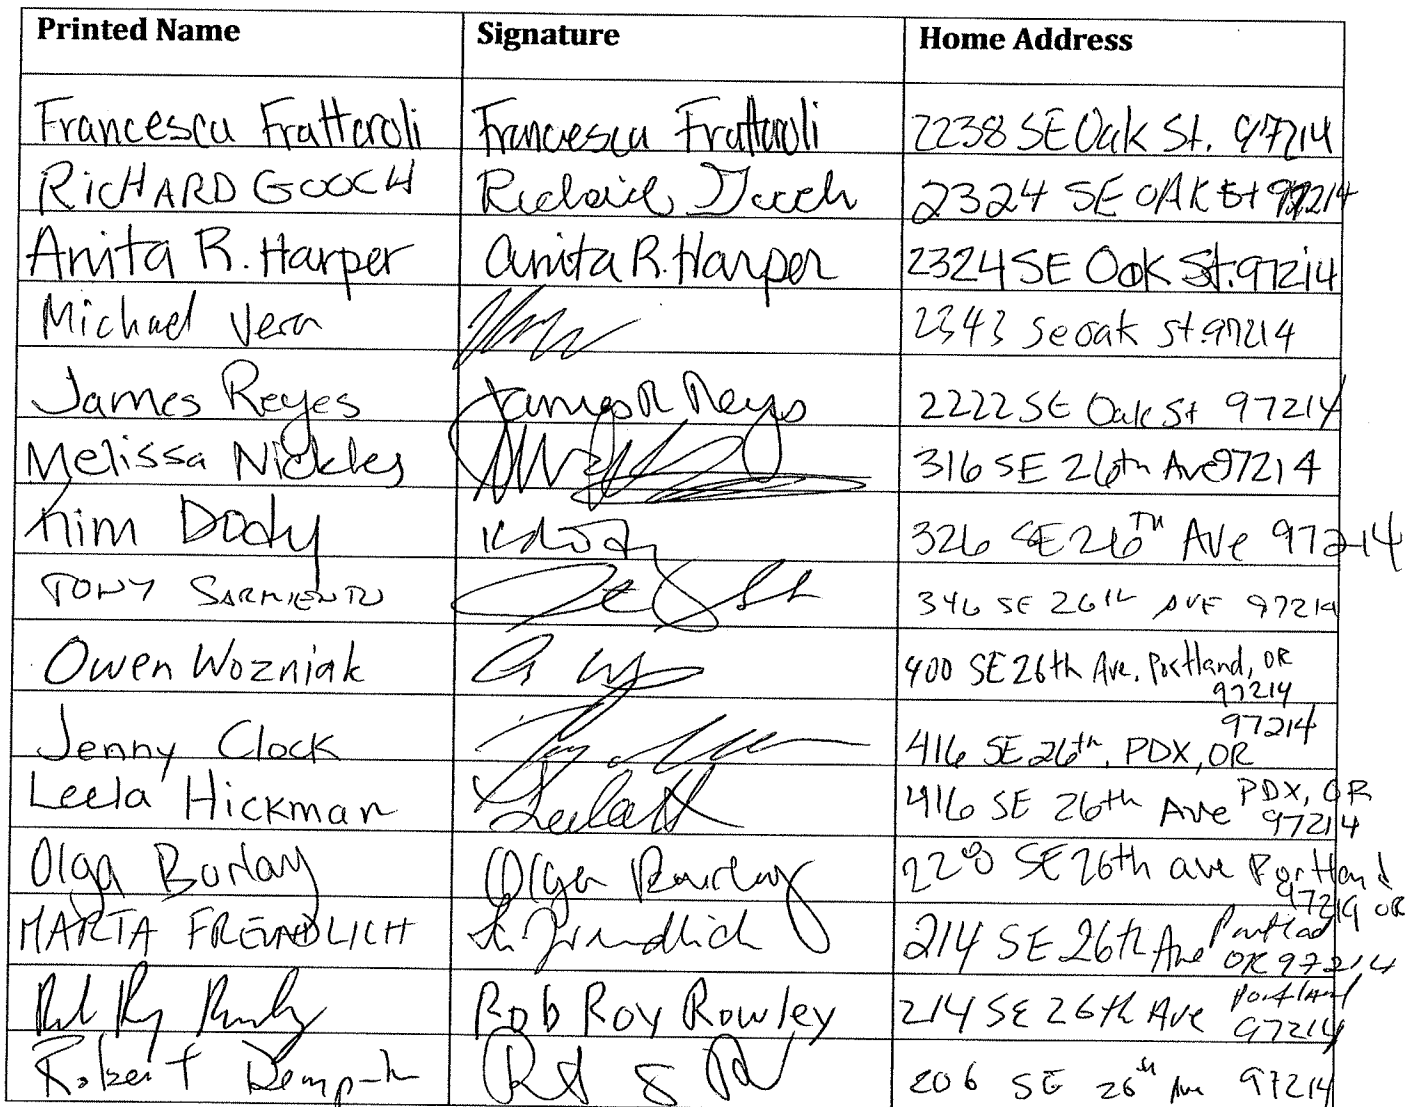 Printed Name Signature Home Address
Francesca Frattaroli Francesca Frattaroli 2238 SE Oak St. 97214
RICHARD GOOCH Richard Gooch 2324 SE OAK St 97214
Anita R. Harper Anita R. Harper 2324 SE Oak St. 97214
Michael Vern 2343 Se oak St. 97214
James Reyes James R Reyes 2222 SE Oak St 97214
Melissa Nickles 316 SE 26th Ave 97214
Kim Dody 326 SE 26TH Ave 97214
TONY SARMIENTO 346 SE 26th AVE 97214
Owen Wozniak 400 SE 26th Ave. Portland, OR
97214
97214
Jenny Clock 416 SE 26th, PDX, OR
Leela Hickman Leela H 416 SE 26th Ave PDX, OR
97214
Olga Burlay Olga Burlay SE 26th ave Portland
97214 OR
MARTA FREUNDLICH Freundlich 214 SE 26th Ave Portland
OR 97214
Rob Roy Rowley Rob Roy Rowley 214 SE 26th Ave Portland
97214
Robert 206 SE 26th Ave 97214